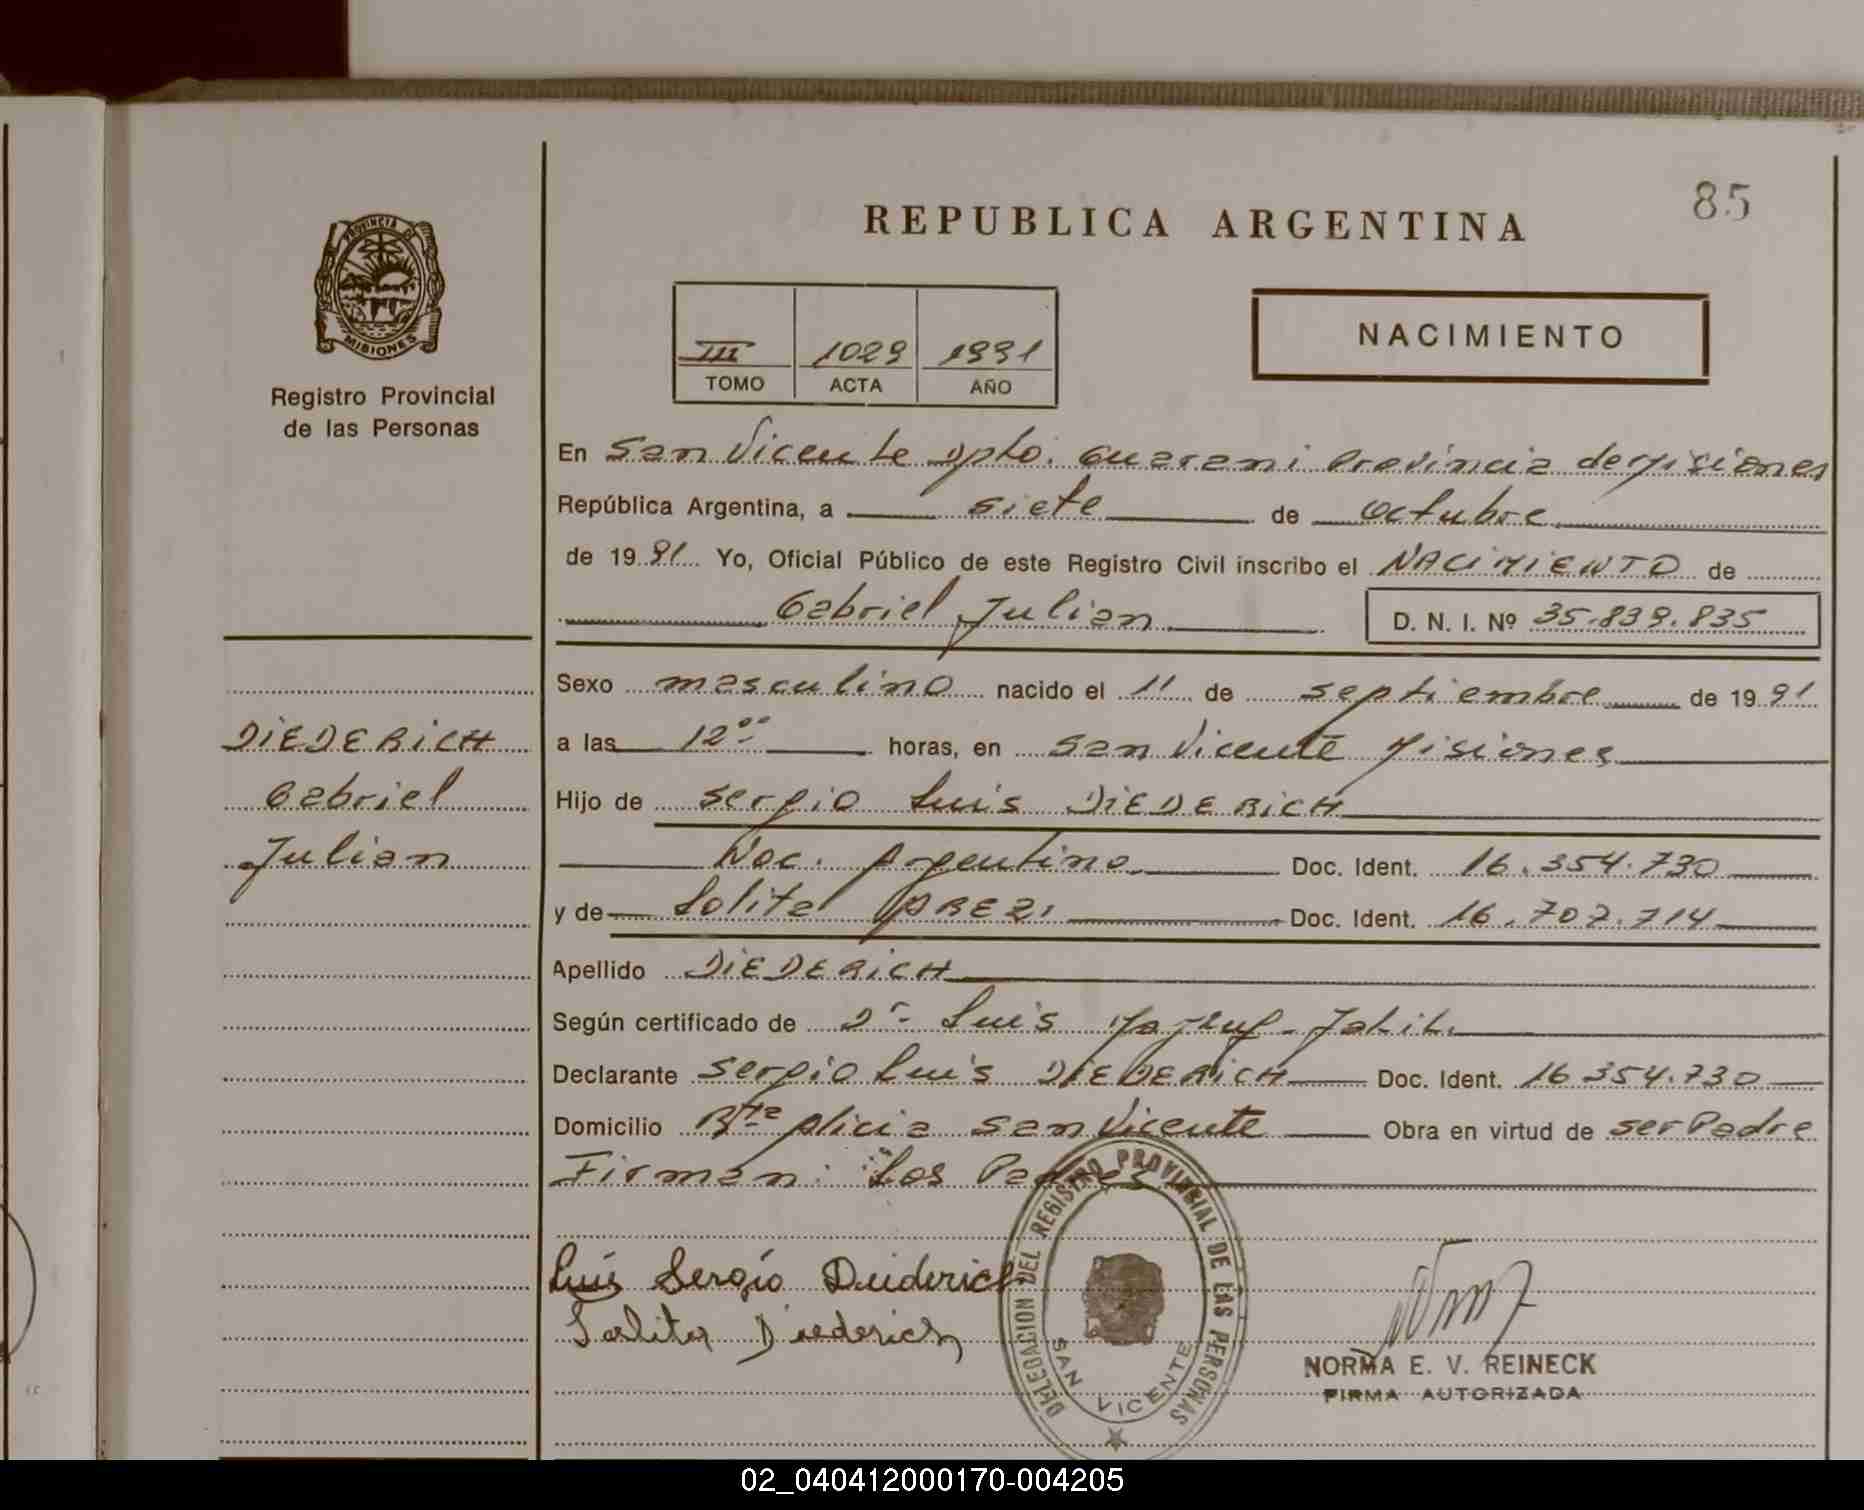 85
REPUBLICA ARGENTINA
PROVINCIA DE
MISIONES
Registro Provincial
de las Personas
III 1029 1991
TOMO ACTA AÑO
NACIMIENTO
En San Vicente Dpto. Guarani Provincia de Misiones
República Argentina, a siete de octubre
de 1991 Yo, Oficial Público de este Registro Civil inscribo el NACIMIENTO de
Gabriel Julian D. N. I. Nº 35.839.835
Sexo masculino nacido el 11 de septiembre de 1991
DIEDERICH
a las 12ºº horas, en San Vicente Misiones
Gabriel
Hijo de Sergio Luis DIEDERICH
Julian
Nac. Argentina Doc. Ident. 16.354.730
y de Lolita Doc. Ident. 16.707.714
Apellido DIEDERICH
Según certificado de Dr Luis
Declarante Sergio Luis DIEDERICH Doc. Ident. 16 354.730
Domicilio San Vicente Obra en virtud de ser Padre
Firman: Los Padres
Luis Sergio Diederich
Diederich
DELEGACION DEL REGISTRO PROVINCIAL DE LAS PERSONAS
SAN VICENTE
NORMA E. V. REINECK
FIRMA AUTORIZADA
02_040412000170-004205